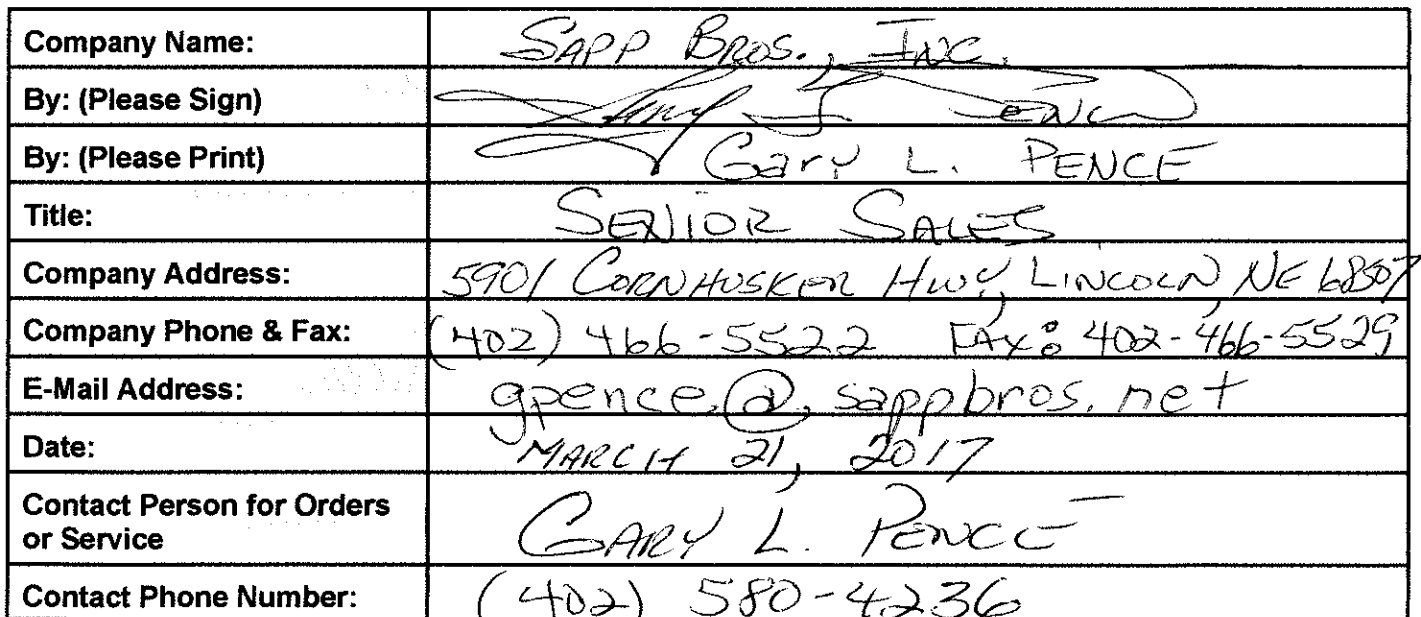 Company Name: SAPP BROS., INC.
By: (Please Sign) Gary L Pence
By: (Please Print) Gary L. PENCE
Title: SENIOR SALES
Company Address: 5901 CORNHUSKER HWY, LINCOLN, NE 68507
Company Phone & Fax: (402) 466-5522 FAX: 402-466-5529
E-Mail Address: gpence@sappbros.net
Date: MARCH 21, 2017
Contact Person for Orders
or Service GARY L. PENCE
Contact Phone Number: (402) 580-4236